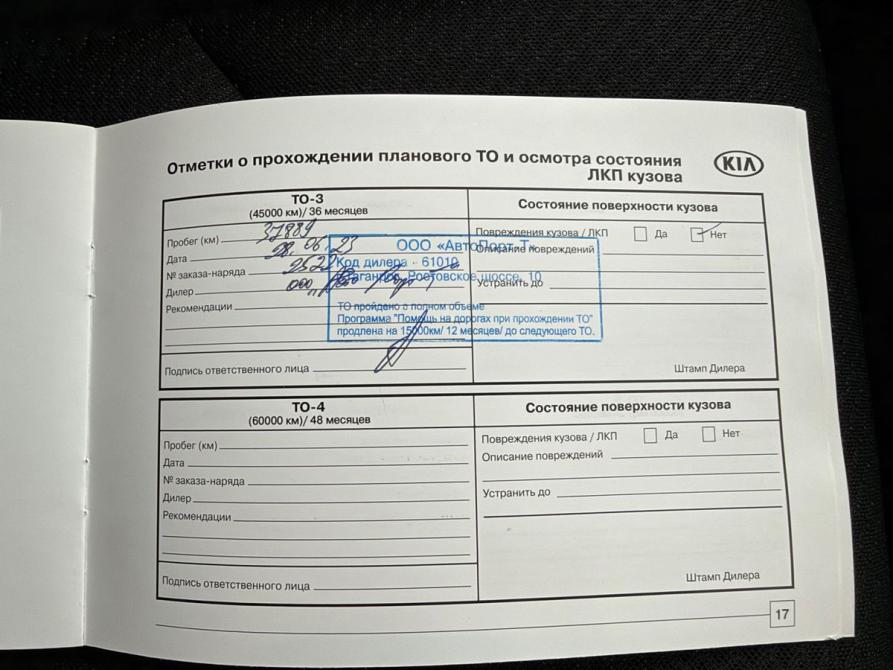 Отметки о прохождении планового ТО и осмотра состояния
ЛКП кузова
KIA
ТО-3
(45000 км)/ 36 месяцев
Пробег (км) 37889
Дата 28.06.23
№ заказа-наряда 2522
Дилер ООО
Рекомендации
Подпись ответственного лица
Состояние поверхности кузова
Повреждения кузова / ЛКП Да Нет
Описание повреждений
Устранить до
Штамп Дилера
ООО «АвтоПорт-Т»
Код дилера - 61010
Таганрог, Ростовское шоссе, 10
ТО пройдено в полном объеме
Программа "Помощь на дорогах при прохождении ТО"
продлена на 15000км/ 12 месяцев/ до следующего ТО.
ТО-4
(60000 км)/ 48 месяцев
Пробег (км)
Дата
№ заказа-наряда
Дилер
Рекомендации
Подпись ответственного лица
Состояние поверхности кузова
Повреждения кузова / ЛКП Да Нет
Описание повреждений
Устранить до
Штамп Дилера
17